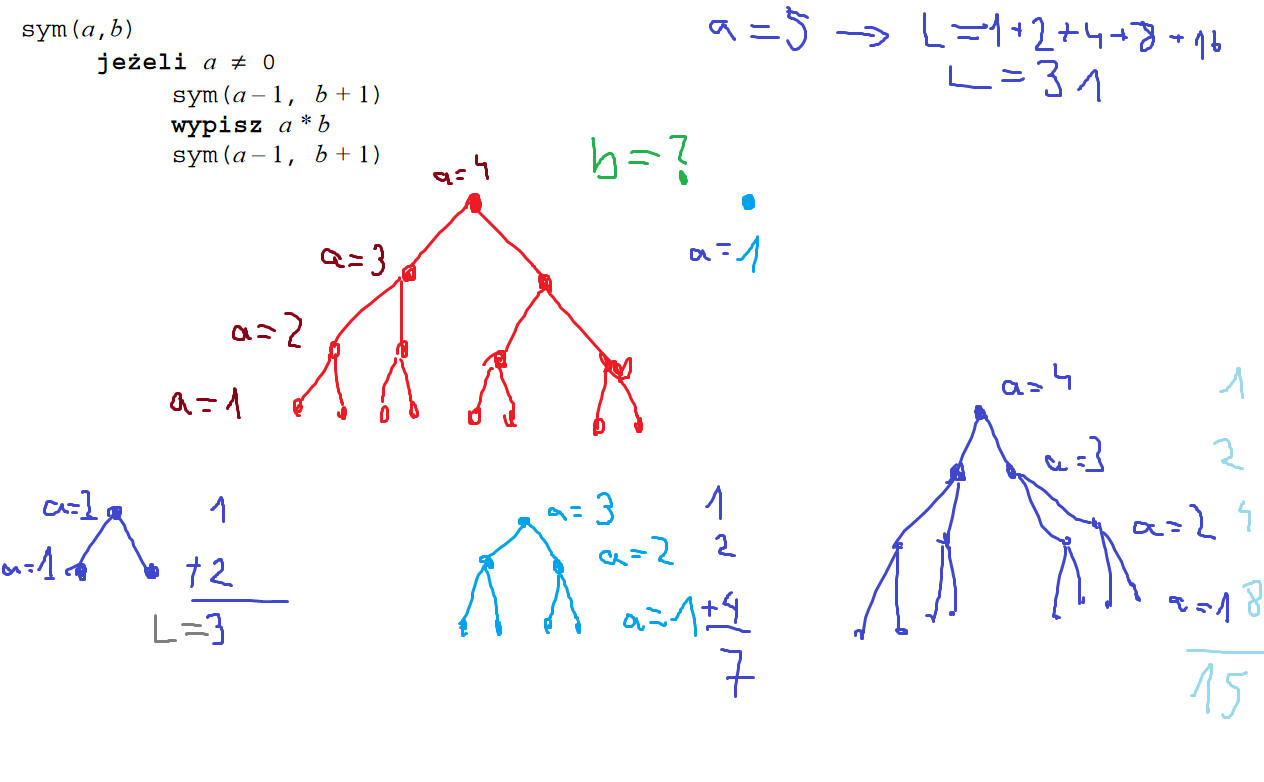 sym(a,b)
jeżeli a ≠ 0
sym(a−1, b+1)
wypisz a*b
sym(a−1, b+1)
a=5 → L=1+2+4+8+16
L=31
b=?
a=4
a=3
a=2
a=1
a=1
a=2
a=1
1
+2
L=3
a=3
a=2
a=1
1
2
+4
7
a=4
a=3
a=2
a=1
1
2
4
8
15